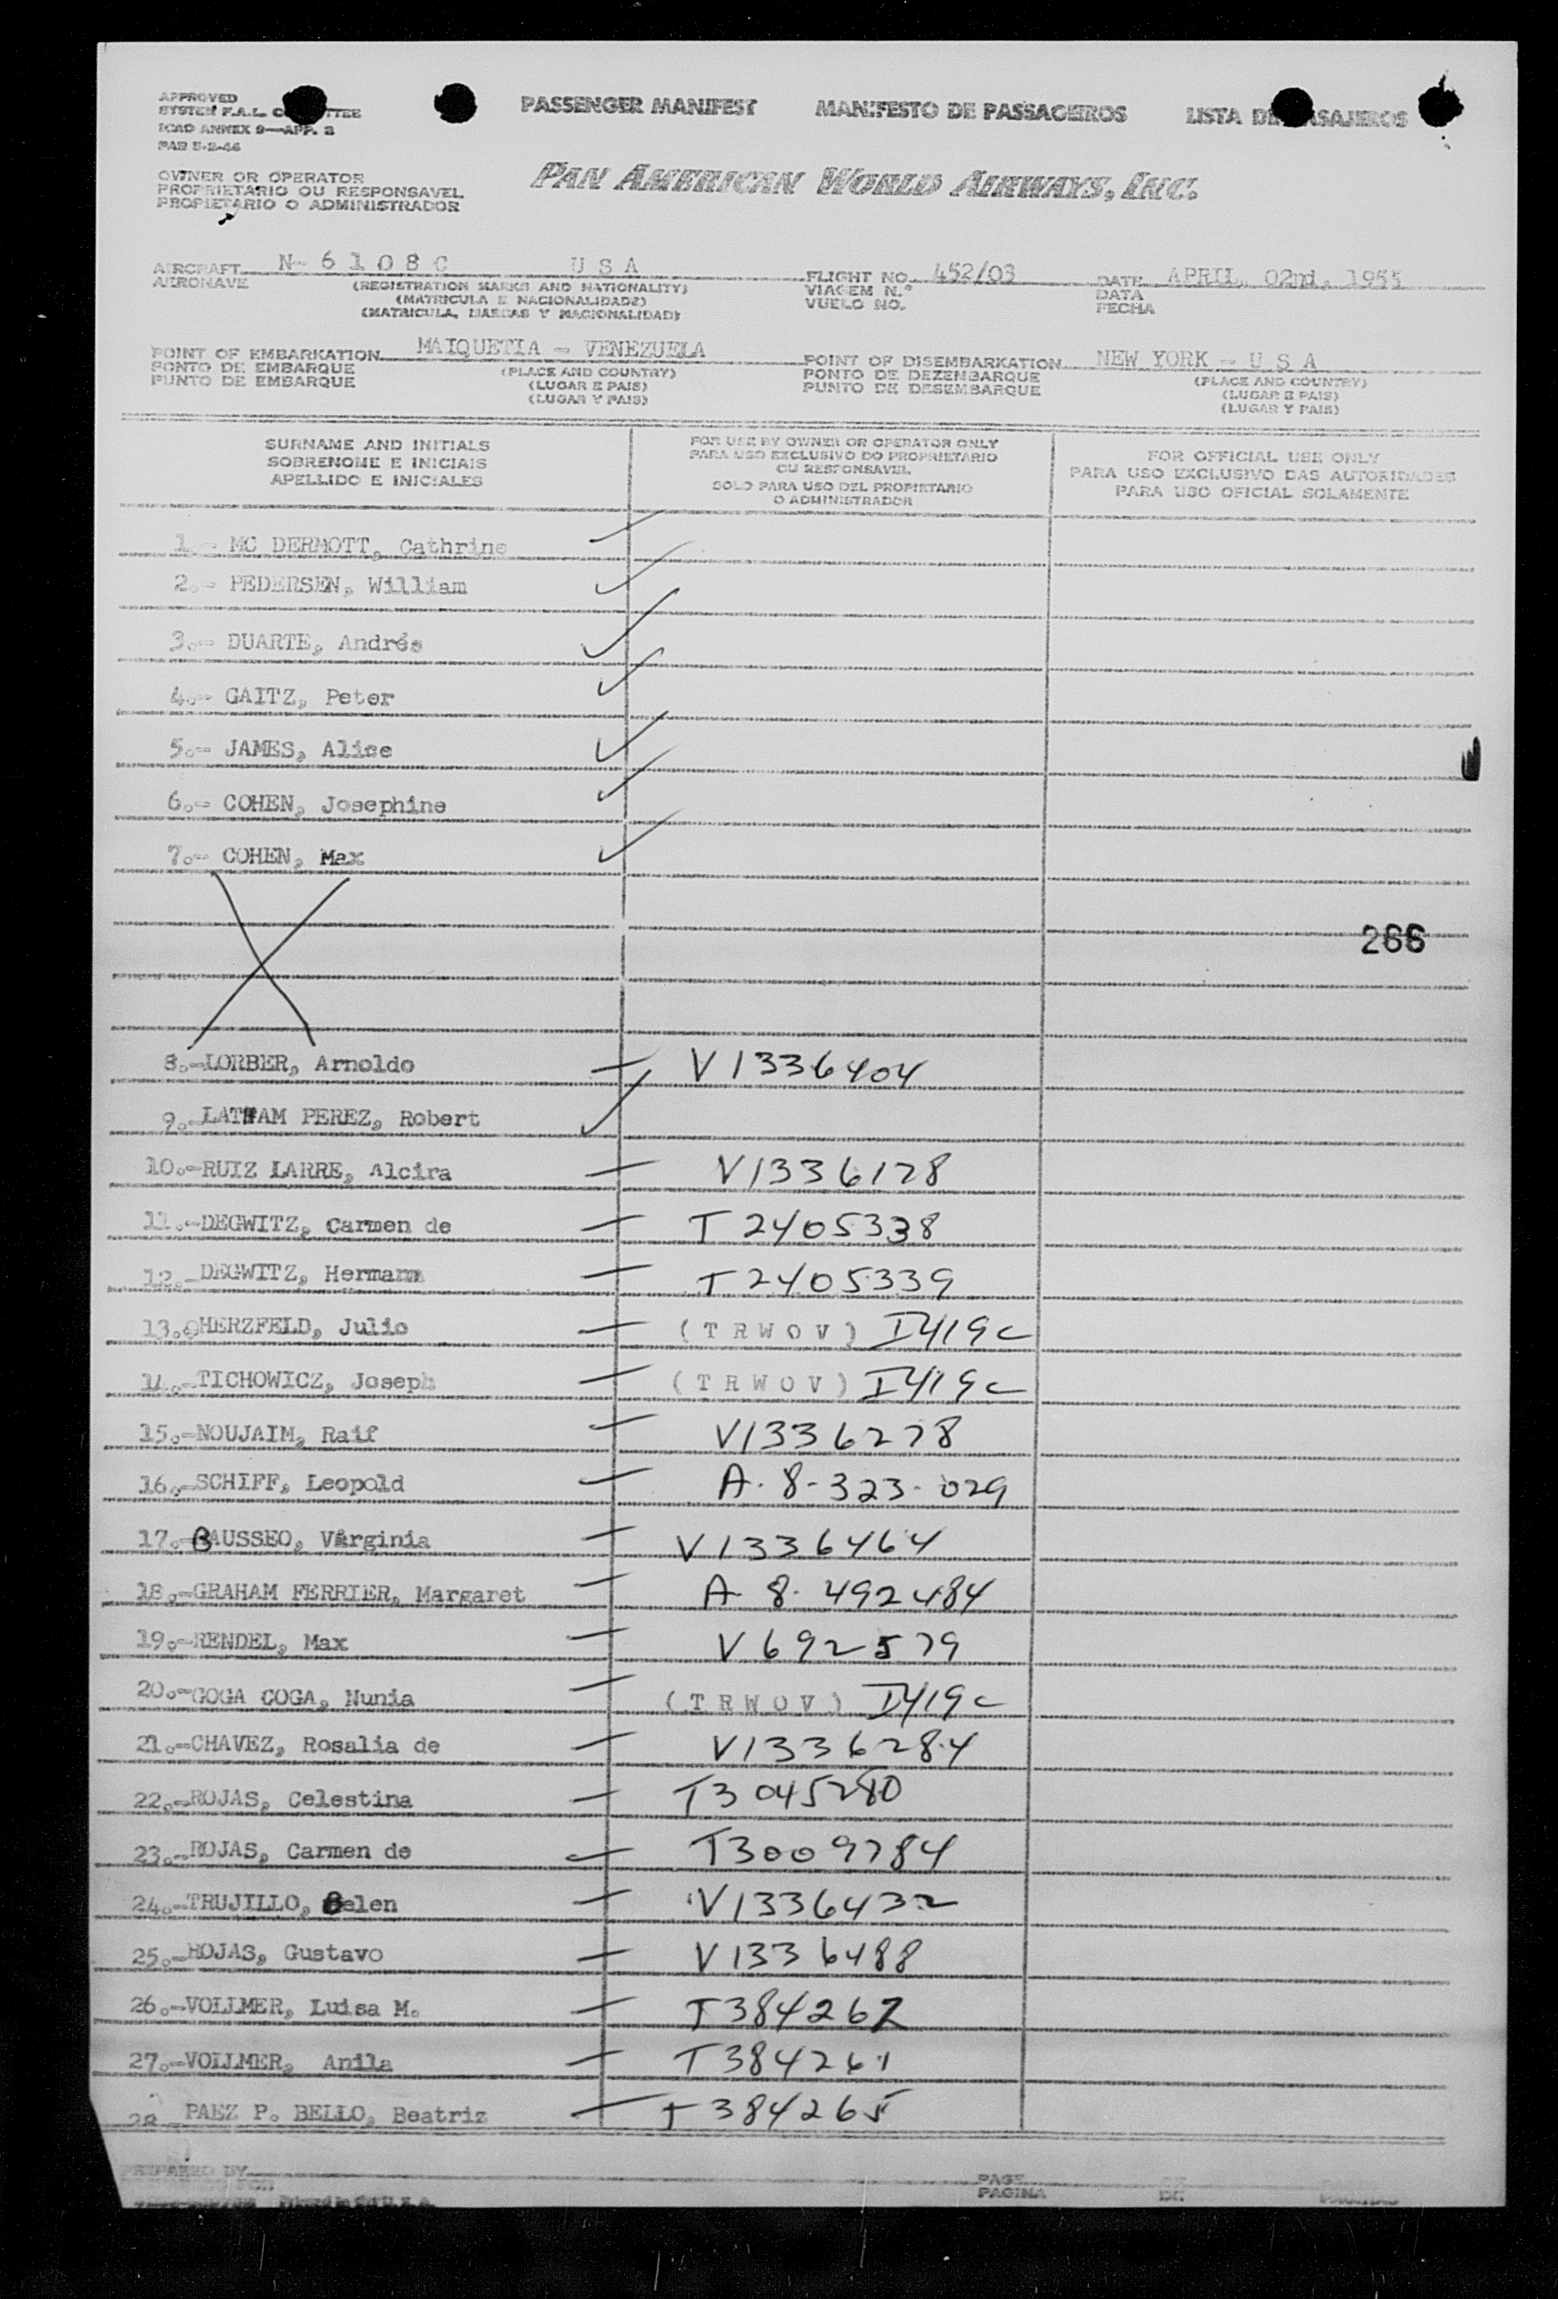 APPROVED
SYSTEM F.A.L. COMMITTEE
ICAO ANNEX 9—APP. 3
PAR 5-2-46
PASSENGER MANIFEST MANIFESTO DE PASSAGEIROS LISTA DE PASAJEROS
OWNER OR OPERATOR
PROPRIETARIO OU RESPONSAVEL
PROPIETARIO O ADMINISTRADOR
PAN AMERICAN WORLD AIRWAYS, INC.
AIRCRAFT N- 6 1 0 8 C U S A FLIGHT NO. 452/03 DATE APRIL, 02nd, 1955
AERONAVE (REGISTRATION MARKS AND NATIONALITY) VIAGEM N.º DATA
(MATRICULA E NACIONALIDADE) VUELO NO. FECHA
(MATRICULA, MARCAS Y NACIONALIDAD)
POINT OF EMBARKATION MAIQUETIA - VENEZUELA POINT OF DISEMBARKATION NEW YORK - U S A
PONTO DE EMBARQUE (PLACE AND COUNTRY) PONTO DE DEZEMBARQUE (PLACE AND COUNTRY)
PUNTO DE EMBARQUE (LUGAR E PAIS) PUNTO DE DESEMBARQUE (LUGAR E PAIS)
(LUGAR Y PAIS) (LUGAR Y PAIS)
SURNAME AND INITIALS
SOBRENOME E INICIAIS
APELLIDO E INICIALES
FOR USE BY OWNER OR OPERATOR ONLY
PARA USO EXCLUSIVO DO PROPRIETARIO
OU RESPONSAVEL
SOLO PARA USO DEL PROPIETARIO
O ADMINISTRADOR
FOR OFFICIAL USE ONLY
PARA USO EXCLUSIVO DAS AUTORIDADES
PARA USO OFICIAL SOLAMENTE
1.- MC DERMOTT, Cathrine
2.- PEDERSEN, William
3.- DUARTE, Andrés
4.- GAITZ, Peter
5.- JAMES, Alice
6.- COHEN, Josephine
7.- COHEN, Max
266
8.-LORBER, Arnoldo V1336404
9.-LATHAM PEREZ, Robert
10.-RUIZ LARRE, Alcira V1336128
11.-DEGWITZ, Carmen de T2405338
12.-DEGWITZ, Hermann T2405339
13.-HERZFELD, Julio (T R W O V) I419c
14.-TICHOWICZ, Joseph (T R W O V) I419c
15.-NOUJAIM, Raif V1336278
16.-SCHIFF, Leopold A.8-323-029
17.-BAUSSEO, Virginia V1336464
18.-GRAHAM FERRIER, Margaret A-8-492484
19.-RENDEL, Max V692579
20.-GOGA COGA, Nunia (T R W O V) I419c
21.-CHAVEZ, Rosalia de V1336284
22.-ROJAS, Celestina T3045280
23.-ROJAS, Carmen de T3009784
24.-TRUJILLO, Belen V1336432
25.-ROJAS, Gustavo V1336488
26.-VOLLMER, Luisa M. T384262
27.-VOLLMER, Anila T384261
28 PAEZ P. BELLO, Beatriz T384265
PREPARED BY PAGE
PAGINA DE